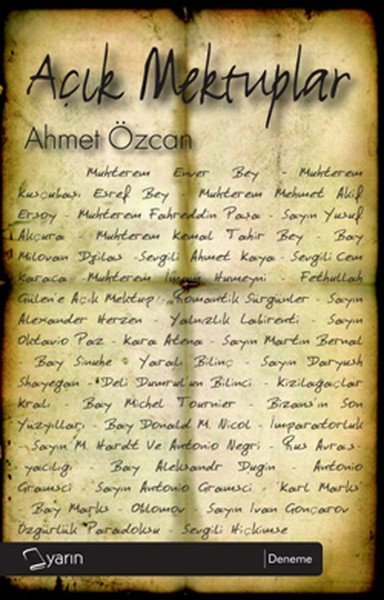 Açık Mektuplar
Ahmet Özcan
Muhterem Enver Bey - Muhterem
Kuşçubaşı Eşref Bey - Muhterem Mehmet Akif
Ersoy - Muhterem Fahreddin Paşa - Sayın Yusuf
Akçura - Muhterem Kemal Tahir Bey - Bay
Milovan Djilas -Sevgili Ahmet Kaya - Sevgili Cem
Karaca - Muhterem İmam Humeyni - Fethullah
Gülen'e Açık Mektup - Romantik Sürgünler - Sayın
Alexander Herzen - Yalnızlık Labirenti - Sayın
Oktavio Paz - Kara Atena - Sayın Martin Bernal
Bay Sinuhe - Yaralı Bilinç - Sayın Daryush
Shayegan - Deli Dumrul'un Bilinci - Kızılağaçlar
Kralı - Bay Michel Tournier - Bizans'ın Son
Yüzyılları - Bay Donald M. Nicol - İmparatorluk
- Sayın M. Hardt Ve Antonio Negri - Rus Avras-
yacılığı - Bay Aleksandr Dugin - Antonio
Gramsci - Sayın Antonio Gramsci - Karl Marks
Bay Marks - Oblomov - Sayın İvan Gonçarov
Özgürlük Paradoksu - Sevgili Hiçkimse
yarın
Deneme